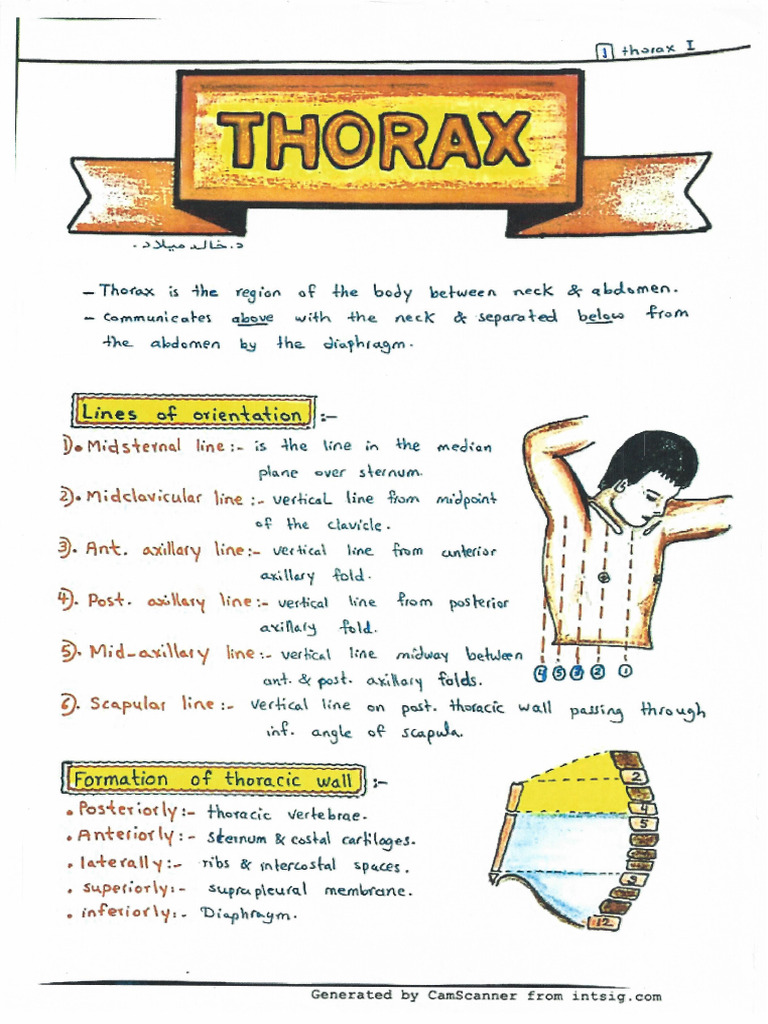 1 thorax I
THORAX
د. خالد ميلاد.
- Thorax is the region of the body between neck & abdomen.
- communicates above with the neck & separated below from
the abdomen by the diaphragm.
Lines of orientation :-
1). Midsternal line :- is the line in the median
plane over sternum.
2). Midclavicular line :- vertical line from midpoint
of the clavicle.
3). Ant. axillary line :- vertical line from anterior
axillary fold.
4). Post. axillary line :- vertical line from posterior
axillary fold.
5). Mid-axillary line :- vertical line midway between
ant. & post. axillary folds.
6). Scapular line :- vertical line on post. thoracic wall passing through
inf. angle of scapula.
4 5 3 2 1
Formation of thoracic wall :-
• Posteriorly :- thoracic vertebrae.
• Anteriorly :- sternum & costal cartilages.
• laterally :- ribs & intercostal spaces.
• superiorly :- suprapleural membrane.
• inferiorly :- Diaphragm.
2
4
5
9
12
Generated by CamScanner from intsig.com